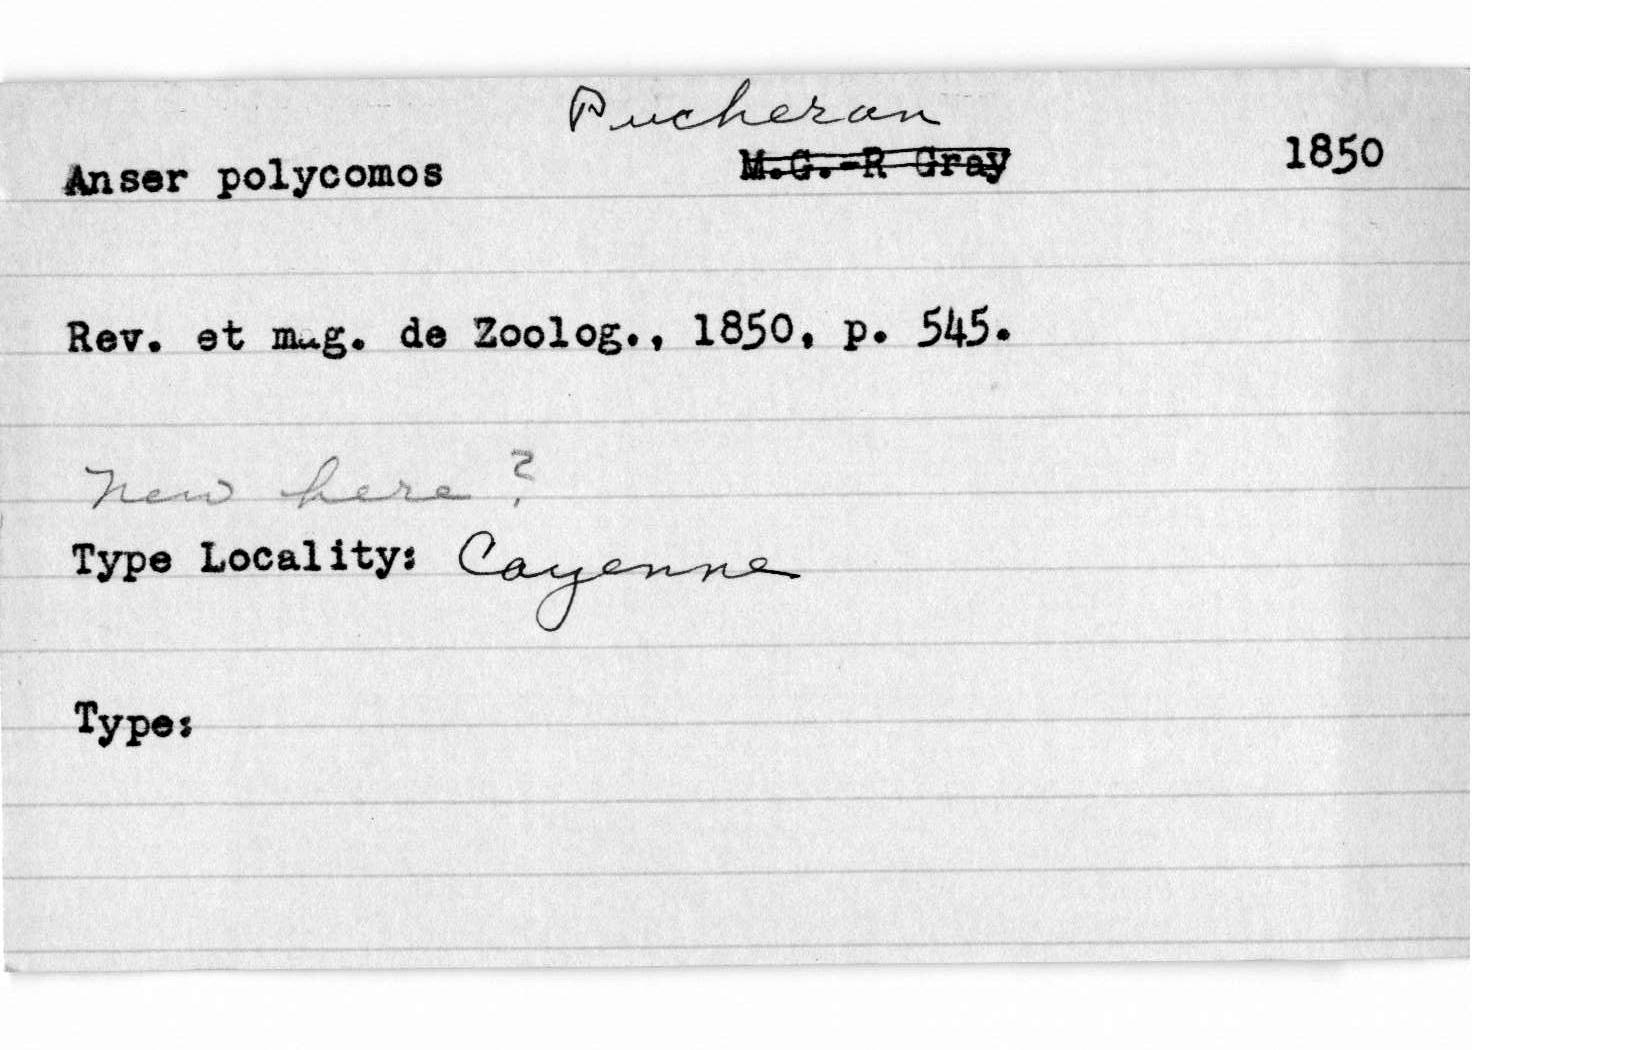 Pucheran
Anser polycomos M.G.-R Gray 1850
Rev. et mag. de Zoolog., 1850, p. 545.
New here ?
Type Locality: Cayenne
Type: